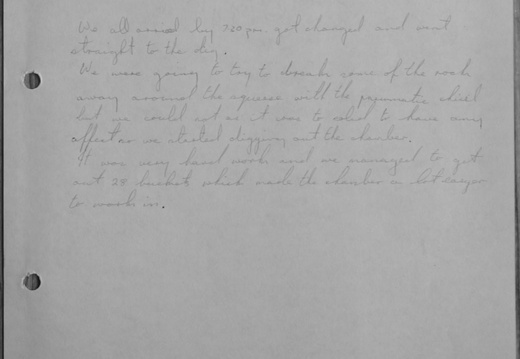 We all arrived by 730 pm. got changed and went
straight to the dig.
We were going to try to break some of the rock
away around the squeeze with the pneumatic chisel
but we could not as it was to solid to have any
affect so we started digging out the chamber.
It was very hard work and we managed to get
out 28 buckets which made the chamber a lot easyer
to work in.